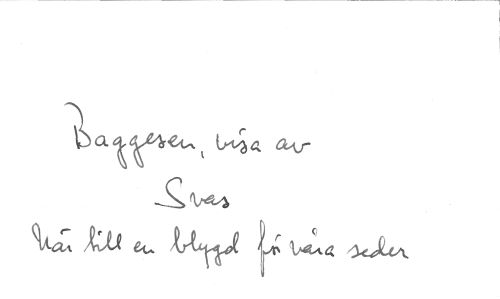 Baggesen, visa av
Svas
När till en blygd för våra seder